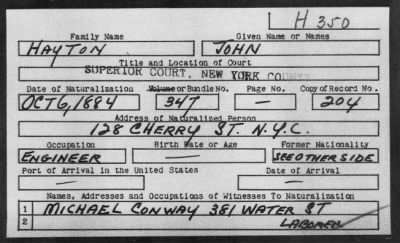 H 350
Family Name Given Name or Names
HAYTON JOHN
Title and Location of Court
SUPERIOR COURT, NEW YORK COUNTY
Date of Naturalization Volume or Bundle No. Page No. Copy of Record No.
OCT 6, 1884 347 — 204
Address of Naturalized Person
128 CHERRY ST. N.Y.C.
Occupation Birth Date or Age Former Nationality
ENGINEER — SEE OTHER SIDE
Port of Arrival in the United States Date of Arrival
— —
Names, Addresses and Occupations of Witnesses To Naturalization
1 MICHAEL CONWAY 381 WATER ST
2 LABORER